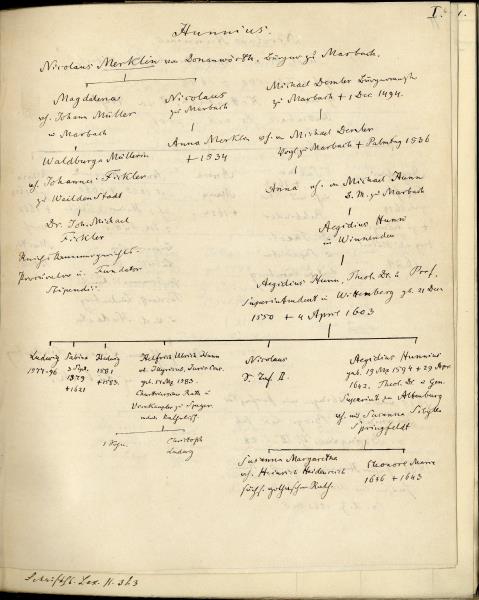 I. 1.
Hunnius.
Nicolaus Merklin von Donauwörth, Bürger zu Marbach.
Magdalena
ux. Johann Müller
in Marbach
Nicolaus
zu Marbach
Michael Demler Bürger
zu Marbach + 1 Dec 1494.
Waldburga Müllerin
ux. Johannes Fickler
zu Weil den Stadt
Anna Merklen
+ 1534
ux. von Michael Demler
Vogt zu Marbach + Palmtag 1536
Dr. Joh. Michael
Fickler
Reichskammergerichts-
Procurator u. Fundator
Stipendii.
Anna ux. von Michael Hunn
B. M. zu Marbach
Aegidius Hunn
in Winnenden
Aegidius Hunn, Theol. Dr. u Prof.
Superintendent in Wittenberg gb. 21 Dec
1550 + 4 April 1603
Ludwig
Sabina
1579
+ 1621
Hedwig
1581
+ 1583.
Helfrich Ulrich Hunn
gb. 1583.
Rath u.
zu Speyer
1 Sohn.
Christoph
Ludwig
Nicolaus
S. Taf. II.
Aegidius Hunnius
geb. 1594 + 29 Apr
1642. Theol. Dr. u Gen.
Superint. zu Altenburg
ux. Susanna Sibylla
Springfeldt
Susanna Margaretha
ux. Heinrich Heidenreich
sächs. gothaischer Rath.
Eleonore Marie
1636 + 1643
Lex. II. 363